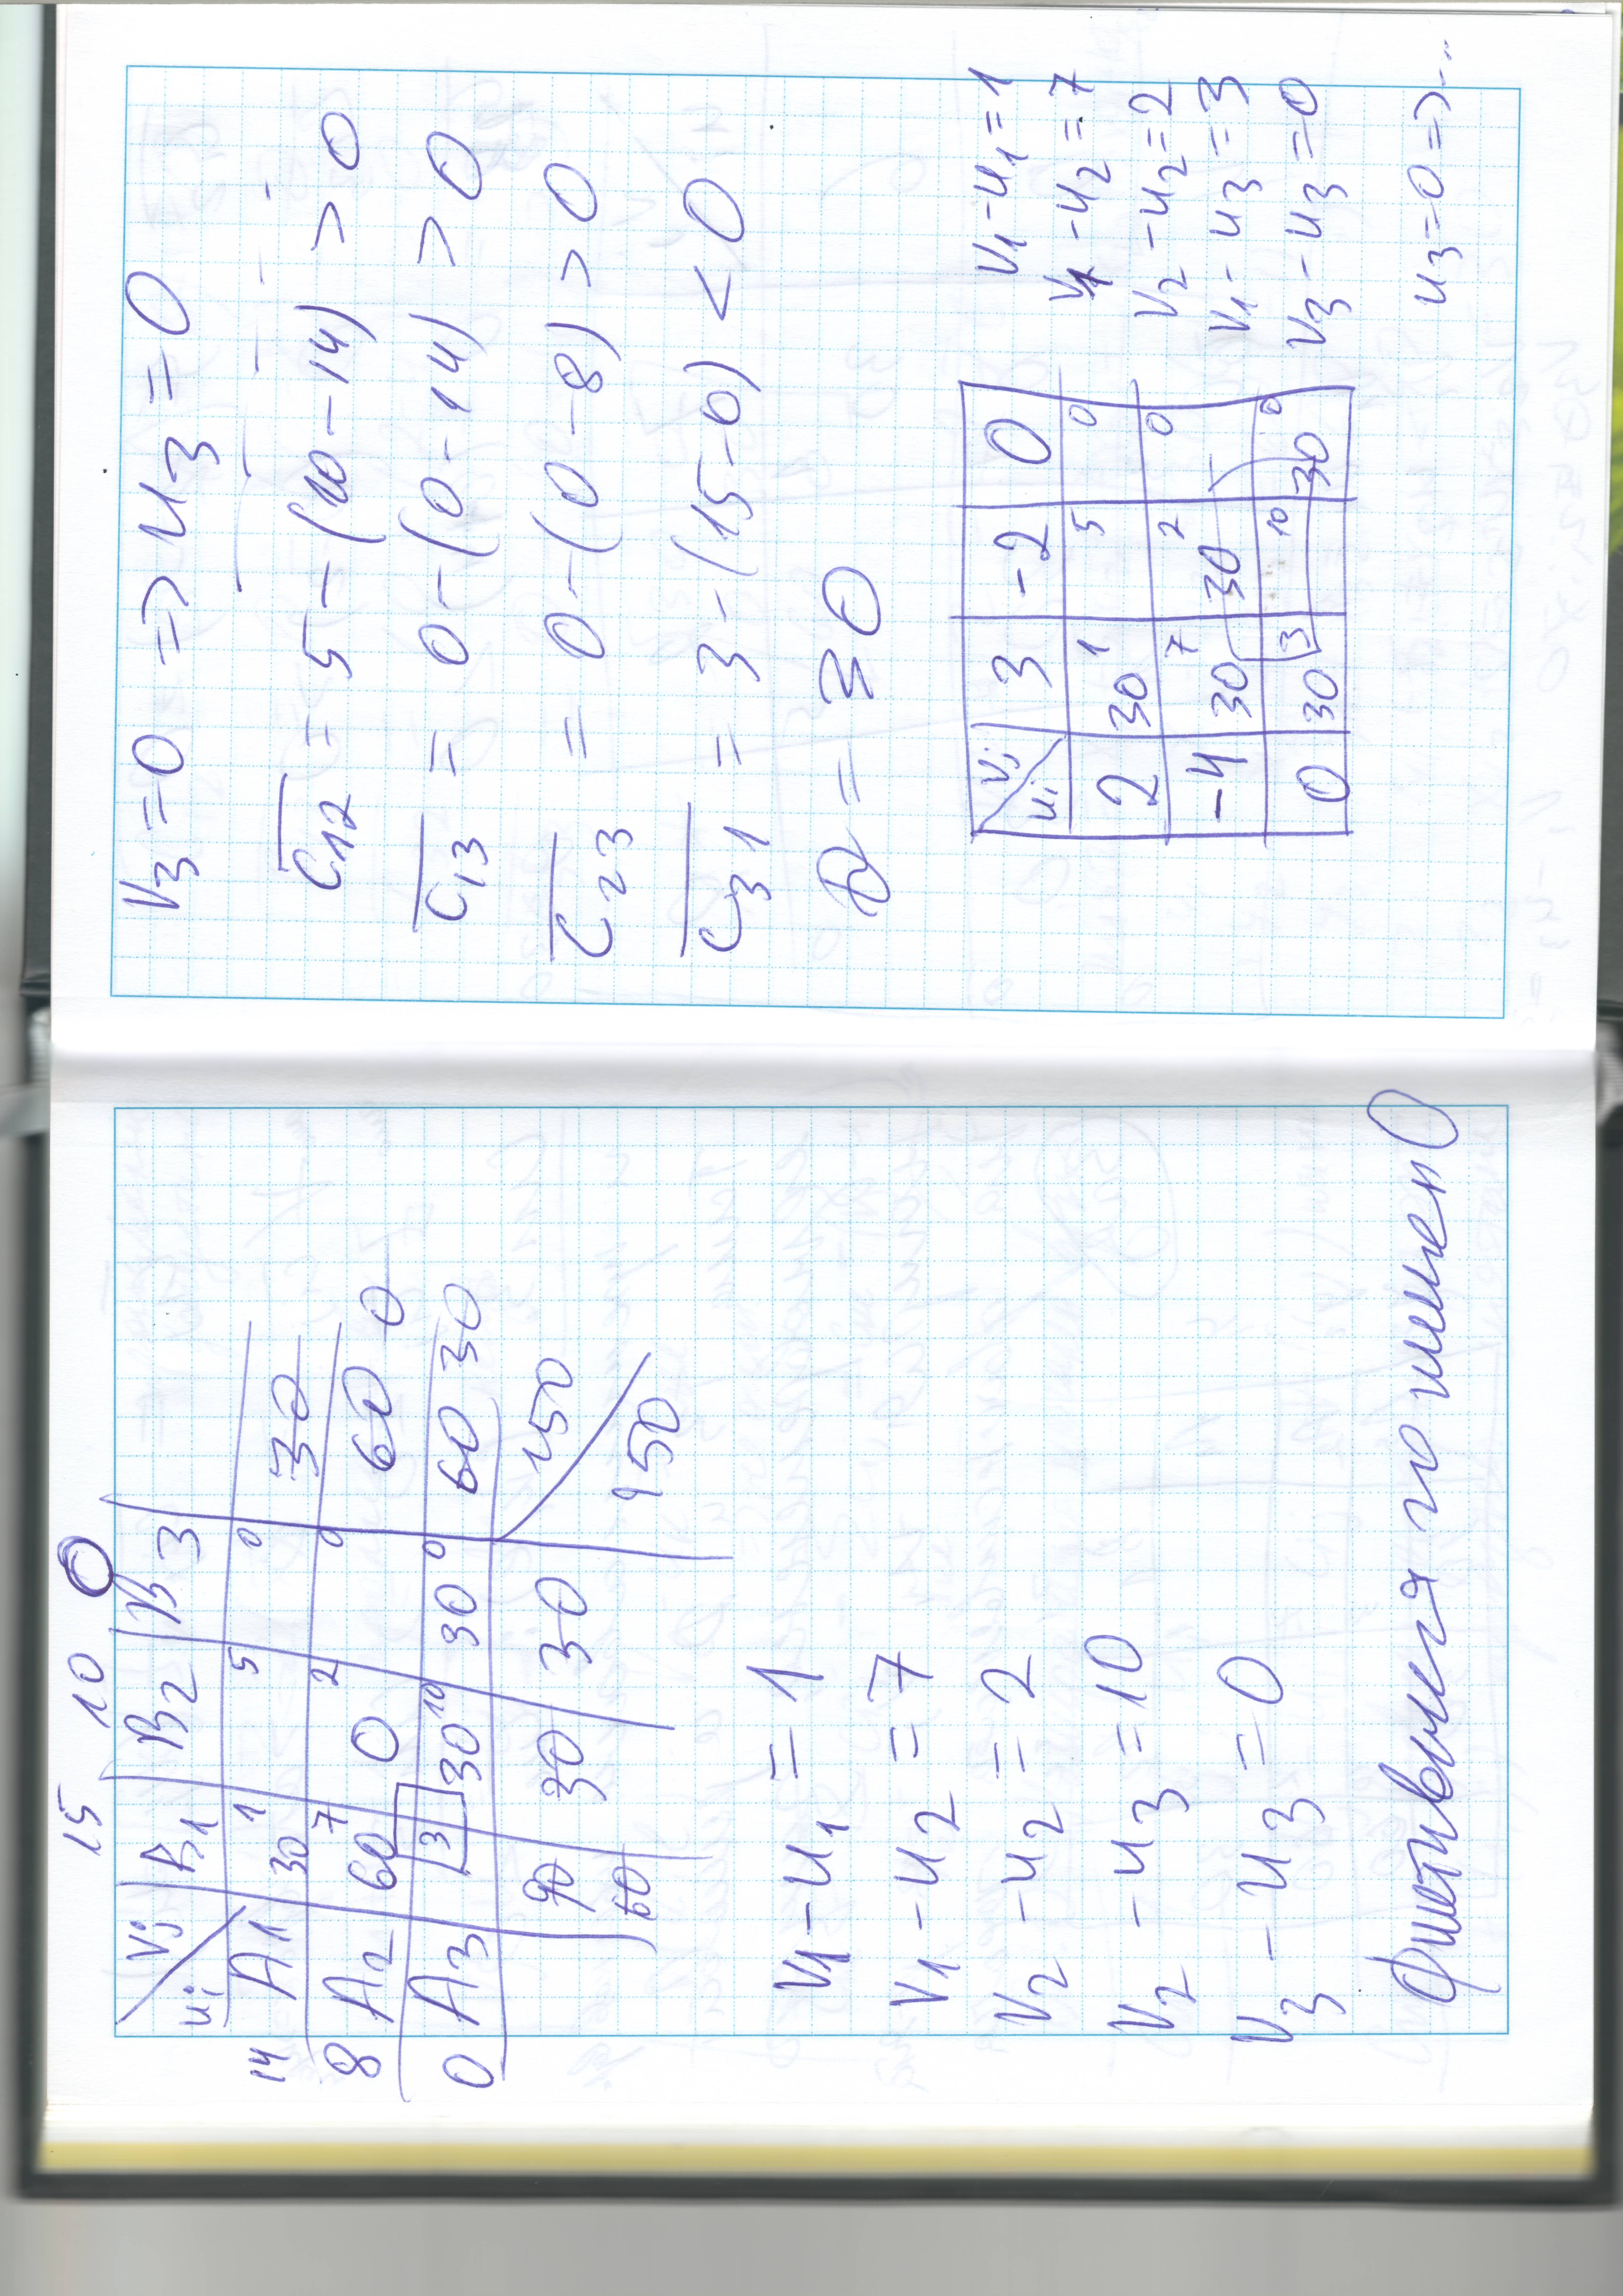 15 10 0
ui Vj B1 B2 B3
14 A1 30 1 5 0 30
8 A2 60 7 0 2 0 60 0
0 A3 3 30 10 30 0 60 30
90 30 30 150
60 150
V1 - u1 = 1
V1 - u2 = 7
V2 - u2 = 2
V2 - u3 = 10
V3 - u3 = 0
V3 = 0 => u3 = 0
C12 = 5 - (10 - 14) > 0
C13 = 0 - (0 - 14) > 0
C23 = 0 - (0 - 8) > 0
C31 = 3 - (15 - 0) < 0
= 30
ui Vj 3 -2 0
2 30 1 5 0
-4 30 7 30 2 0
0 30 3 10 30 0
V1 - u1 = 1
V1 - u2 = 7
V2 - u2 = 2
V1 - u3 = 3
V3 - u3 = 0
u3 = 0 => ...